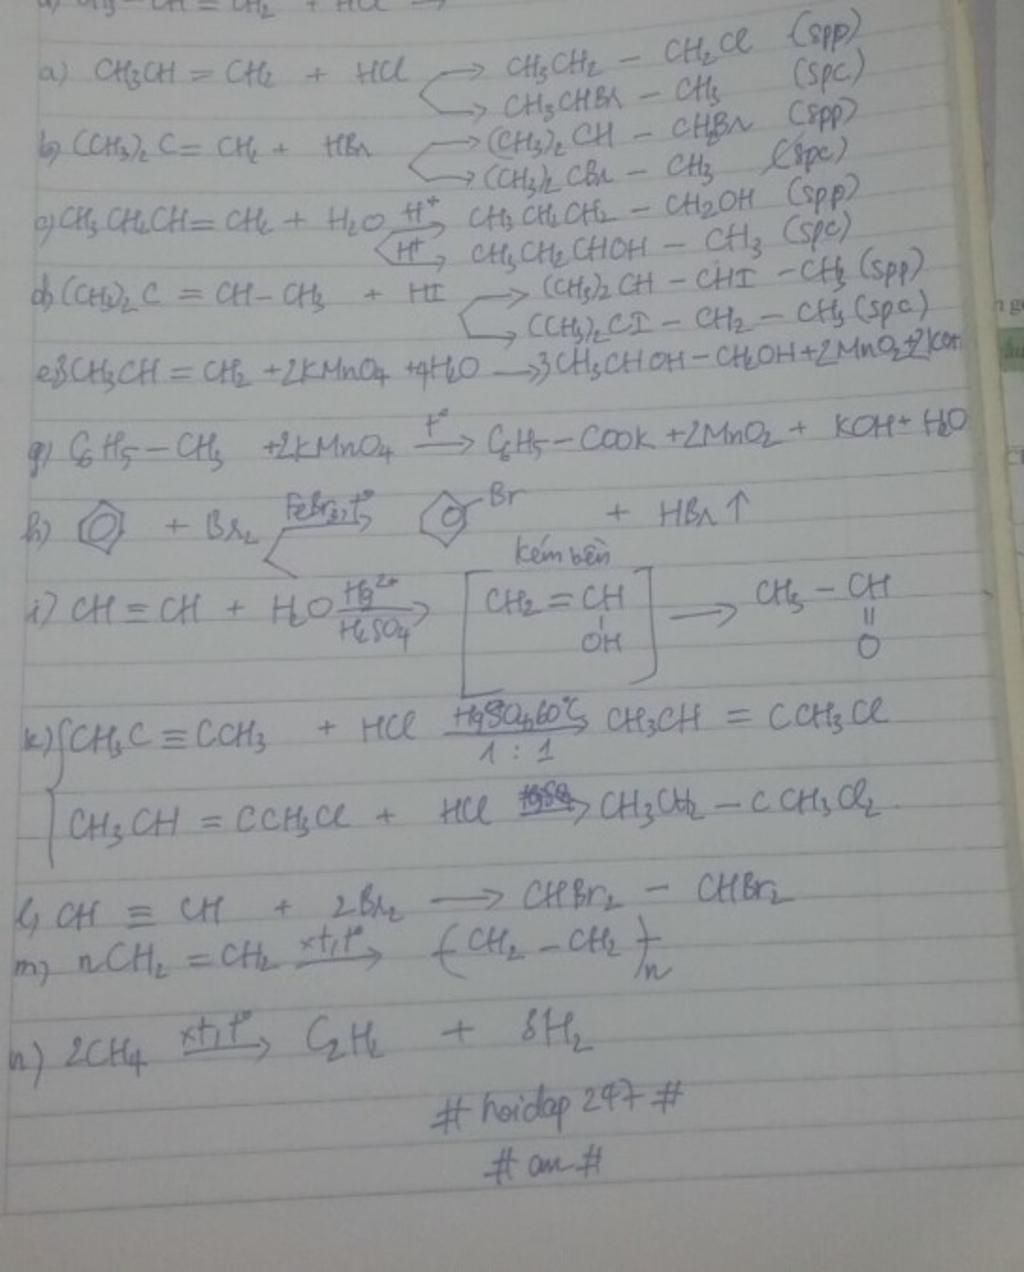 CH = CH2 + HCl →
a) CH3CH = CH2 + HCl → CH3CH2 – CH2Cl (spp)
→ CH3CHBr – CH3 (spc)
b) (CH3)2 C = CH2 + HBr → (CH3)2 CH – CH2Br (spp)
→ (CH3)2 CBr – CH3 (spc)
c) CH3CH2CH = CH2 + H2O H+ → CH3CH2CH2 – CH2OH (spp)
H+ → CH3CH2CHOH – CH3 (spc)
d) (CH3)2 C = CH – CH3 + HI → (CH3)2 CH – CHI – CH3 (spp)
→ (CH3)2 CI – CH2 – CH3 (spc)
e) 3CH3CH = CH2 + 2KMnO4 + 4H2O → 3CH3CHOH – CH2OH + 2MnO2 + 2KOH
g) C6H5 – CH3 + 2KMnO4 t° → C6H5 – COOK + 2MnO2 + KOH + H2O
h) + Br2 FeBr3, t° → Br + HBr ↑
kém bền
i) CH ≡ CH + H2O Hg2+ H2SO4 → [CH2 = CH OH] → CH3 – CH = O
k) CH3C ≡ CCH3 + HCl HgSO4, 60°C 1 : 1 → CH3CH = CCH3Cl
CH3CH = CCH3Cl + HCl → CH3CH2 – CCH3Cl2
l) CH ≡ CH + 2Br2 → CHBr2 – CHBr2
m) nCH2 = CH2 xt, t° → (CH2 – CH2)n
n) 2CH4 xt, t° → C2H2 + 3H2
# hoidap 247 #
# am #